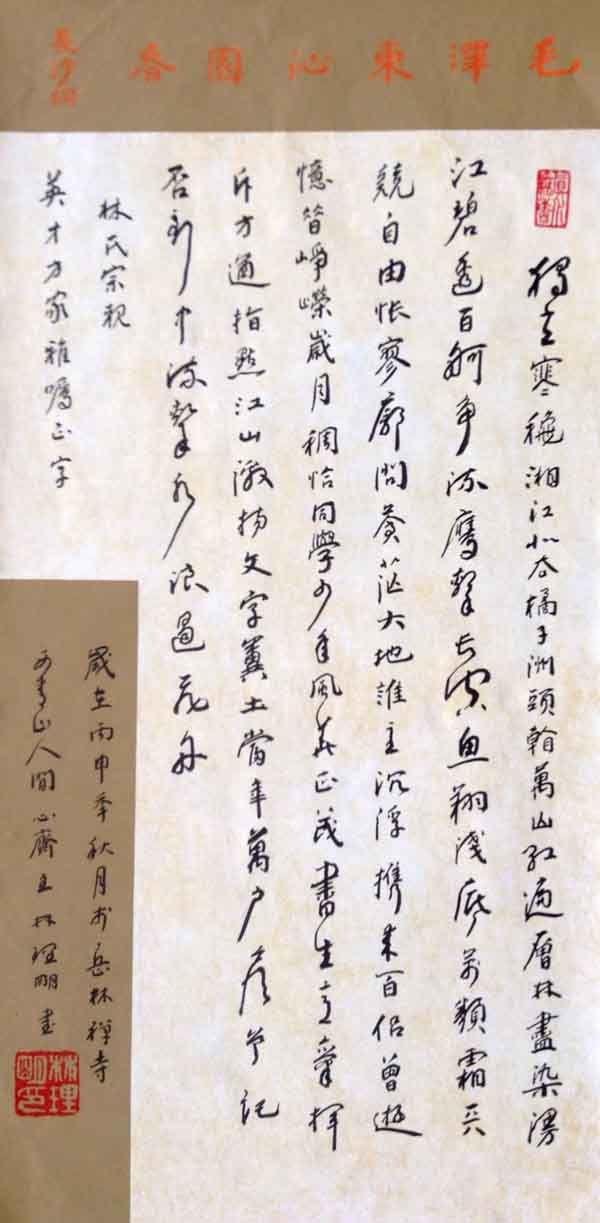 毛澤東沁園春
長沙詞
獨立寒穐湘江北去橘子洲頭看萬山紅遍層林盡染漫
江碧透百舸争流鹰擊长空魚翔浅底萬類霜天
競自由悵寥廓問蒼茫大地誰主沉浮携来百侣曾遊
憶昔崢嶸歲月稠恰同學少年風華正茂書生意氣揮
斥方遒指點江山激揚文字糞土當年萬户侯曾記
否到中流擊水浪遏飛舟
林氏宗親
英才方家雅嘱正字
歲在丙申年秋月於岳林禪寺
青山人閒心齋主林理明書
林理明印